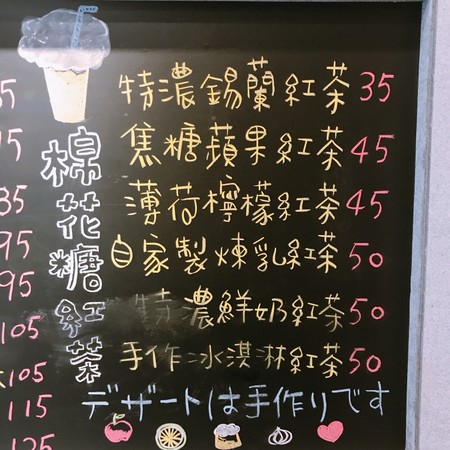 棉花糖紅茶
特濃錫蘭紅茶 35
焦糖蘋果紅茶 45
薄荷檸檬紅茶 45
自家製煉乳紅茶 50
特濃鮮奶紅茶 50
手作冰淇淋紅茶 50
デザートは手作りです
5
5
35
95
95
105
105
115
125